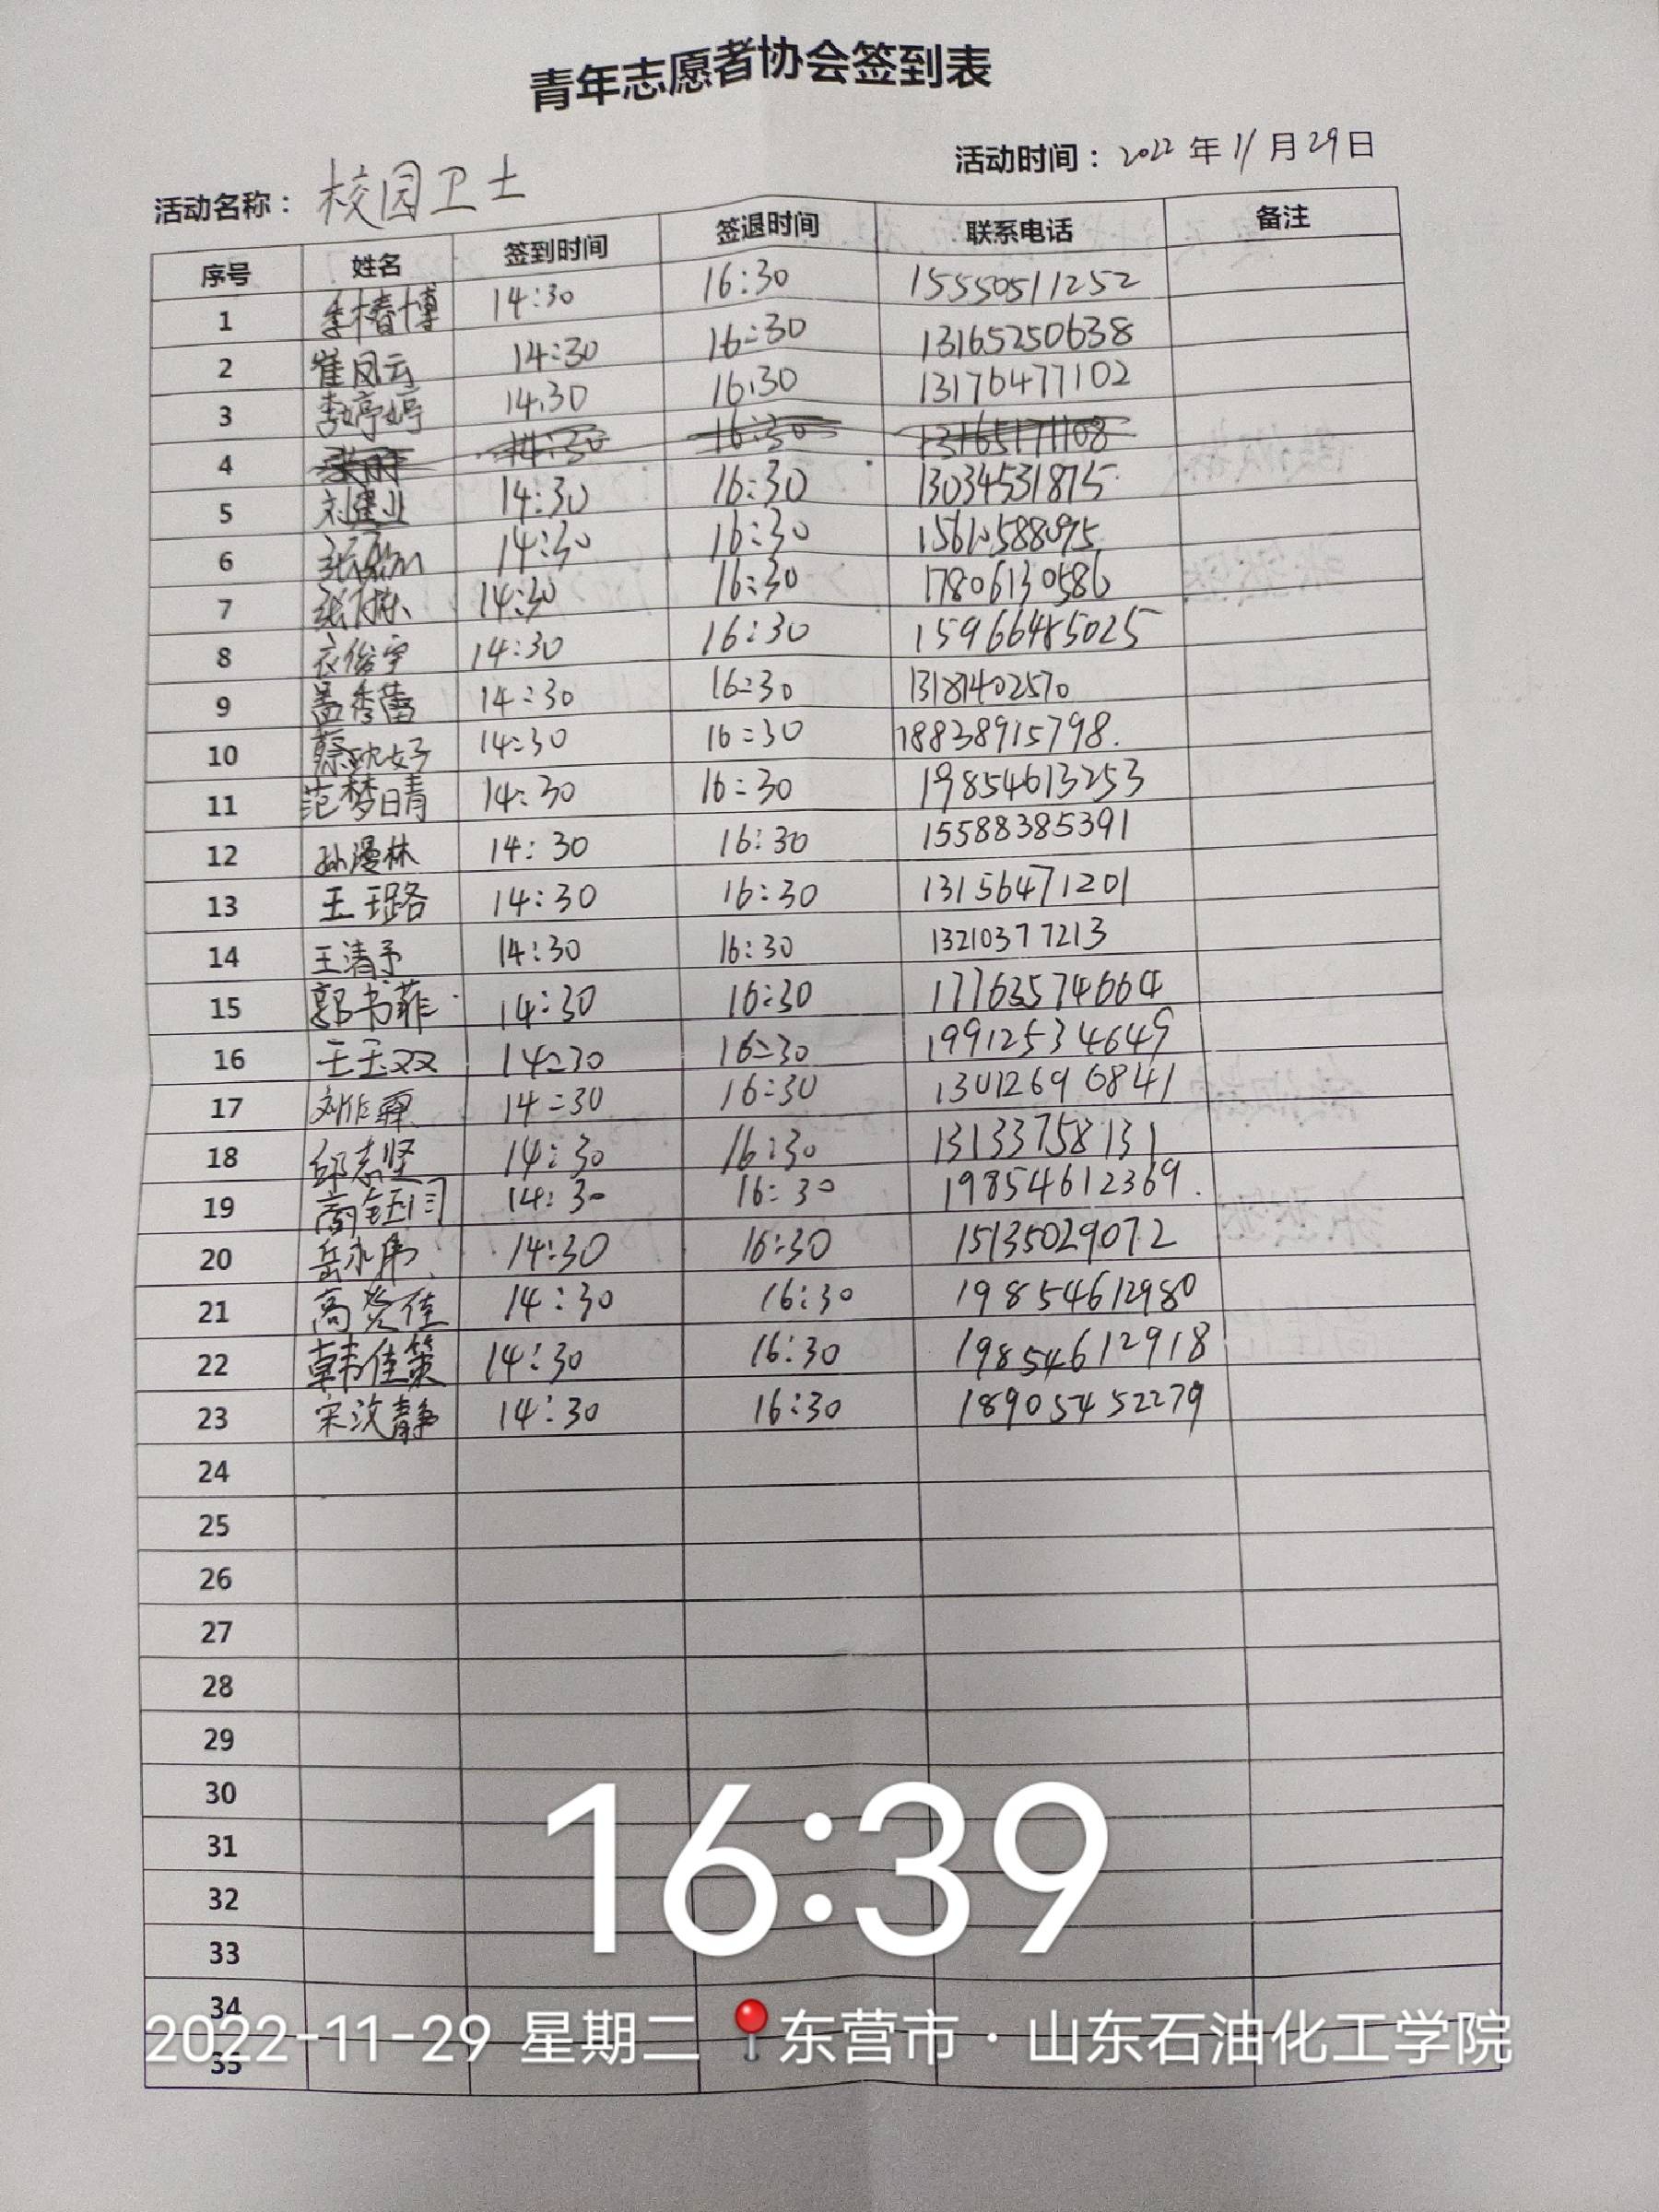 青年志愿者协会签到表
活动名称： 校园卫士 活动时间：2022年11月29日
序号 姓名 签到时间 签退时间 联系电话 备注
1 李椿博 14:30 16:30 15550511252
2 崔凤云 14:30 16:30 13165250638
3 李婷婷 14:30 16:30 13176477102
4 14:30 16:30 13165171108
5 刘建业 14:30 16:30 13034531875
6 14:30 16:30 15610588095
7 14:30 16:30 17806130586
8 衣俊宇 14:30 16:30 15966485025
9 孟秀蕾 14:30 16:30 13181402570
10 14:30 16:30 18838915798.
11 范梦晴 14:30 16:30 19854613253
12 孙漫林 14:30 16:30 15588385391
13 王璐 14:30 16:30 13156471201
14 王清予 14:30 16:30 13210377213
15 郭书菲 14:30 16:30 17763574664
16 王玉双 14:30 16:30 19912534649
17 14:30 16:30 13012696841
18 邱志坚 14:30 16:30 13133758131
19 高钰闫 14:30 16:30 19854612369.
20 14:30 16:30 15135029072
21 14:30 16:30 19854612980
22 韩佳策 14:30 16:30 19854612918
23 宋汶静 14:30 16:30 18905452279
24
25
26
27
28
29
30
31
32
33
34
35
16:39
2022-11-29 星期二 东营市·山东石油化工学院